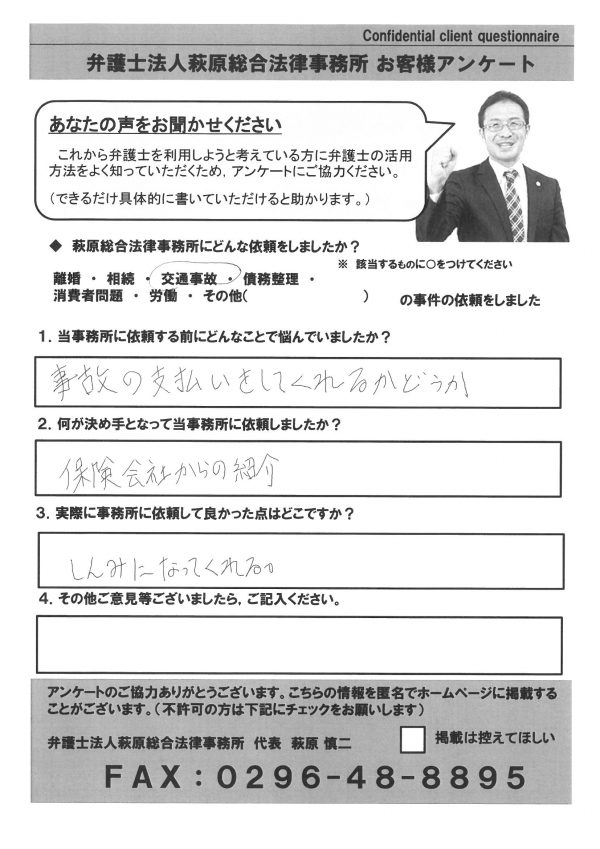 Confidential client questionnaire
弁護士法人萩原総合法律事務所 お客様アンケート
あなたの声をお聞かせください
これから弁護士を利用しようと考えている方に弁護士の活用
方法をよく知っていただくため，アンケートにご協力ください。
（できるだけ具体的に書いていただけると助かります。）
◆ 萩原総合法律事務所にどんな依頼をしましたか？
※ 該当するものに○をつけてください
離婚 ・ 相続 ・ 交通事故 ・ 債務整理 ・
消費者問題 ・ 労働 ・ その他（ ） の事件の依頼をしました
１．当事務所に依頼する前にどんなことで悩んでいましたか？
事故の支払いをしてくれるかどうか
２．何が決め手となって当事務所に依頼しましたか？
保険会社からの紹介
３．実際に事務所に依頼して良かった点はどこですか？
しんみになってくれる。
４．その他ご意見等ございましたら，ご記入ください。
アンケートのご協力ありがとうございます。こちらの情報を匿名でホームページに掲載する
ことがございます。（不許可の方は下記にチェックをお願いします）
弁護士法人萩原総合法律事務所 代表 萩原 慎二
掲載は控えてほしい
ＦＡＸ：０２９６－４８－８８９５